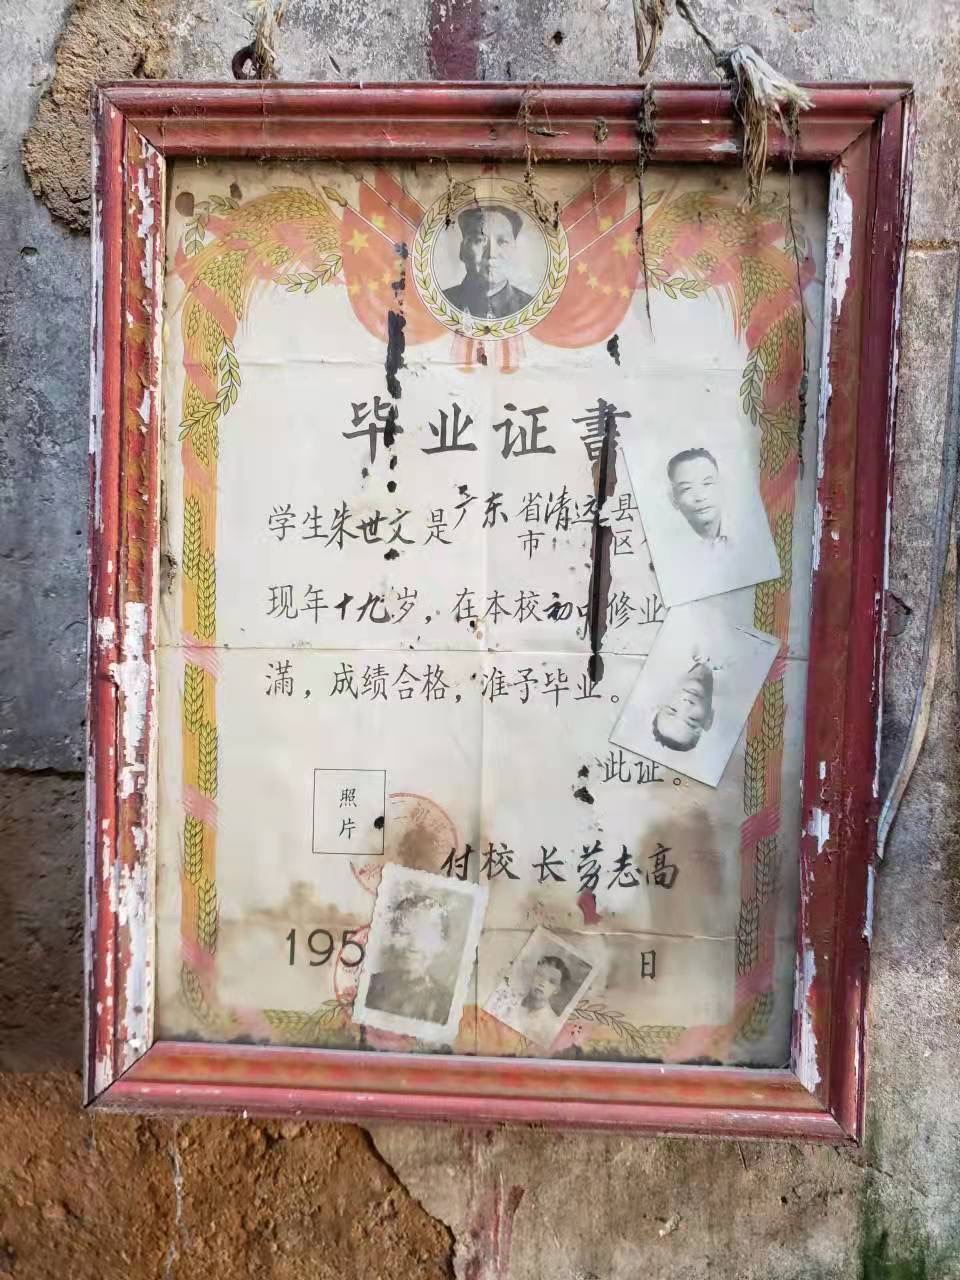 毕业证書
学生朱世文是广东省清远县
市 区
现年十九岁，在本校初中修业
满，成绩合格，准予毕业。
此证。
照
片
付校长劳志高
195 日